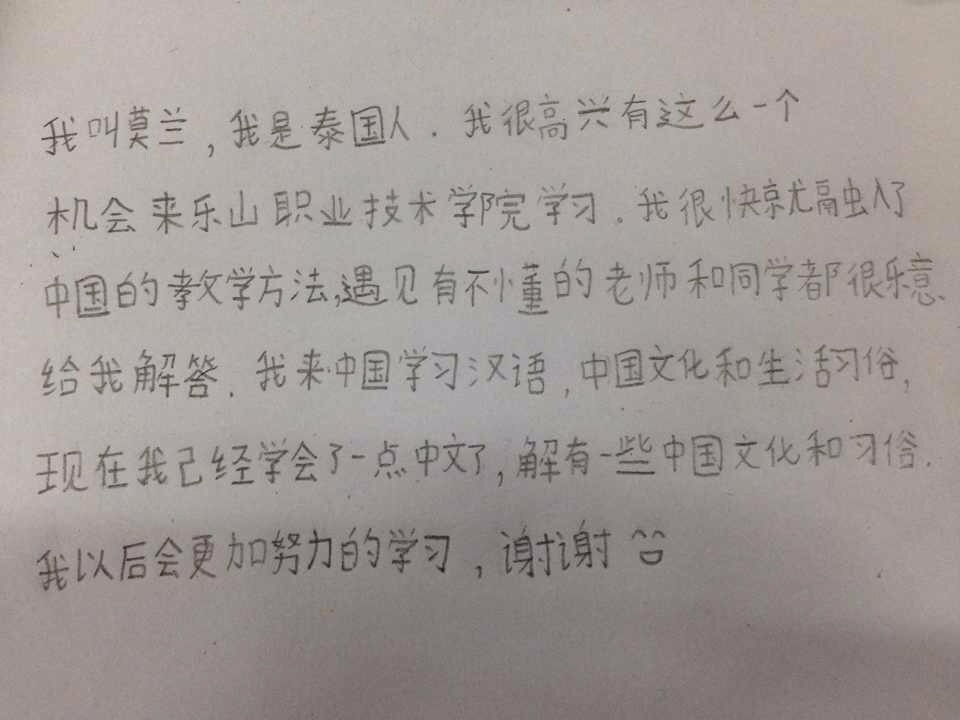 我叫莫兰，我是泰国人．我很高兴有这么一个
机会来乐山职业技术学院学习．我很快就融入了
中国的教学方法，遇见有不懂的老师和同学都很乐意、
给我解答．我来中国学习汉语，中国文化和生活习俗，
现在我己经学会了一点中文了，解有一些中国文化和习俗．
我以后会更加努力的学习，谢谢